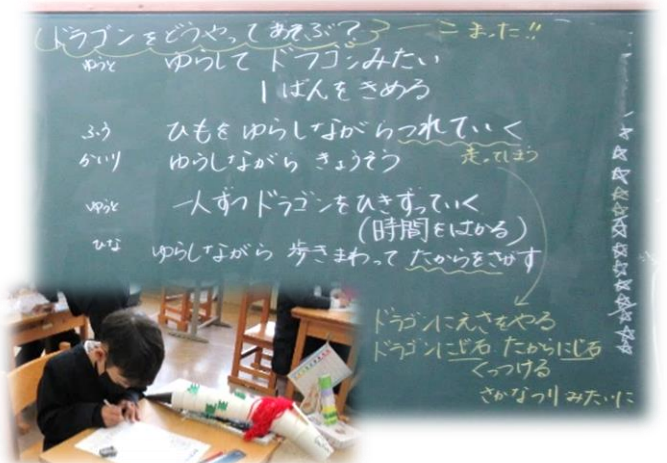 ドラゴンをどうやってあそぶ? こまった!!
ゆうと ゆらして ドラゴンみたい
1ばんをきめる
ふう ひもをゆらしながらつれていく
かいり ゆらしながら きょうそう 走ってしまう
ゆうと 一人ずつドラゴンをひきずっていく
(時間をはかる)
ひな ゆらしながら 歩きまわって たからをさがす
ドラゴンにえさをやる
ドラゴンにじ石 たからにじ石
くっつける
さかなつりみたいに